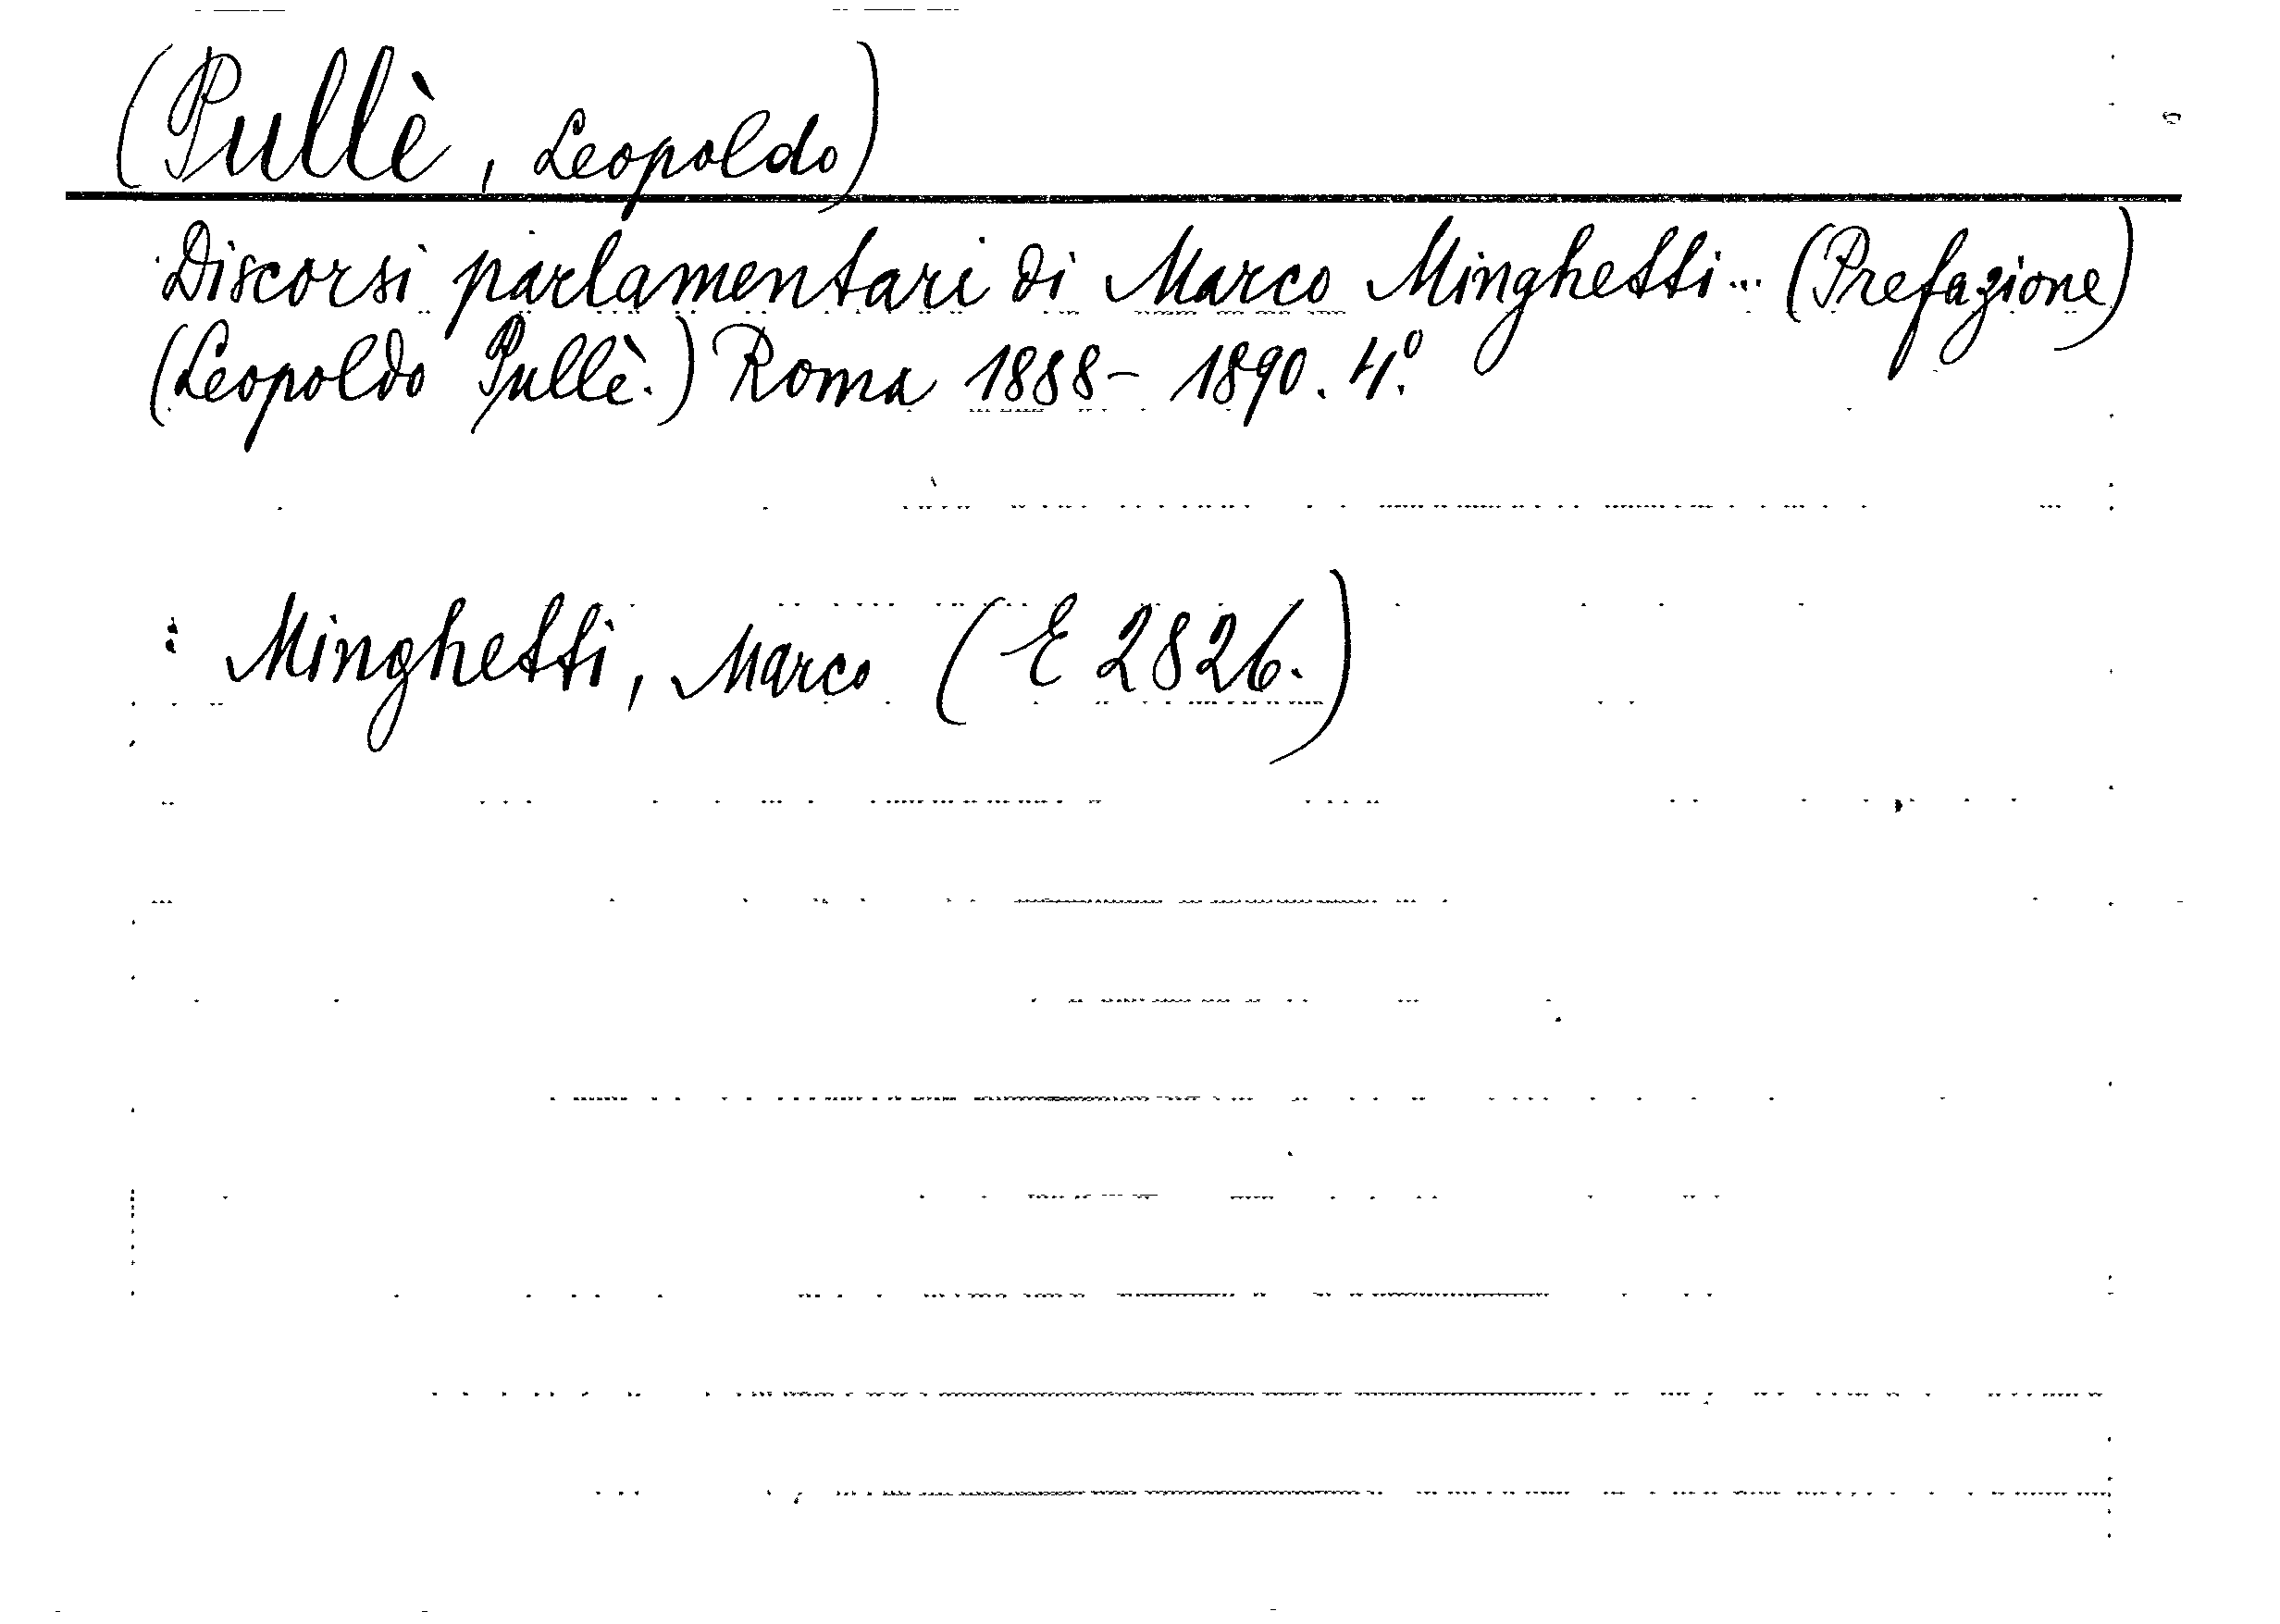 (Pullè, Leopoldo)
Discorsi parlamentari di Marco Minghetti... (Prefazione)
(Leopoldo Pullè.) Roma 1888-1890. 4.º
: Minghetti, Marco (E 2826.)